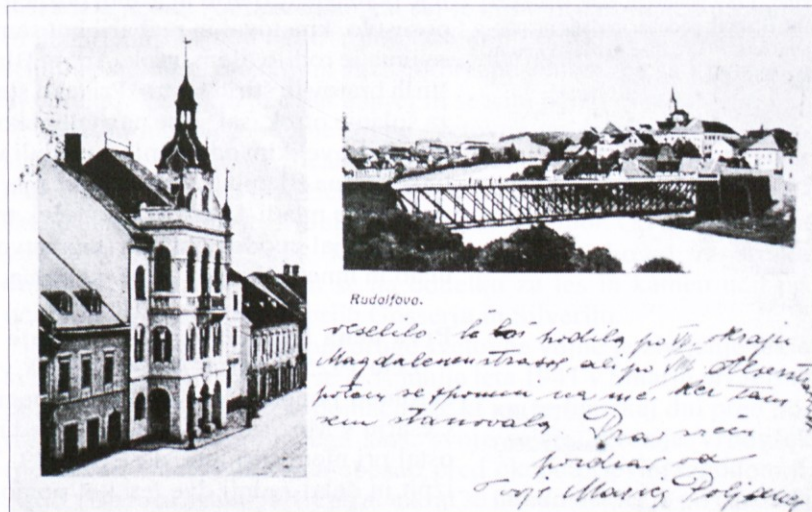 Rudolfovo.
veselilo. Če boš hodila po VI. okraju
Magdalenenstrasse, ali po VIII
potem se spomni na me. Ker tam
sem stanovala. Prav
pozdrav od
Marije